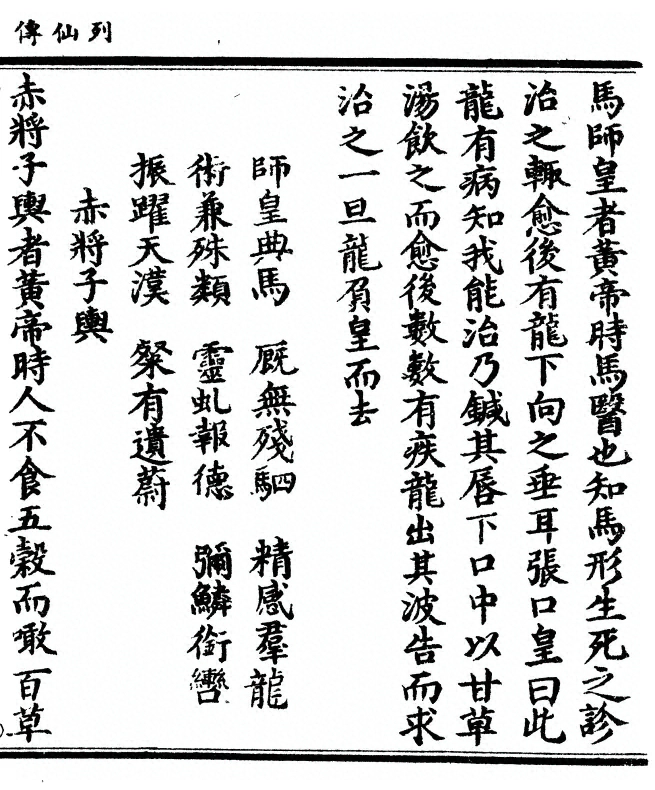 列仙傳
馬師皇者黃帝時馬醫也知馬形生死之診
治之輒愈後有龍下向之垂耳張口皇曰此
龍有病知我能治乃鍼其唇下口中以甘草
湯飲之而愈後數數有疾龍出其波告而求
治之一旦龍負皇而去
師皇典馬 厩無殘駟 精感羣龍
術兼殊類 靈虬報德 彌鱗銜轡
振躍天漢 粲有遺蔚
赤將子輿
赤將子輿者黃帝時人不食五穀而噉百草